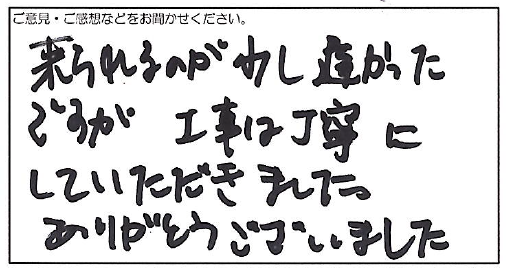 ご意見・ご感想などをお聞かせください。
来られるのが少し遅かった
ですが 工事は丁寧に
していただきました。
ありがとうございました